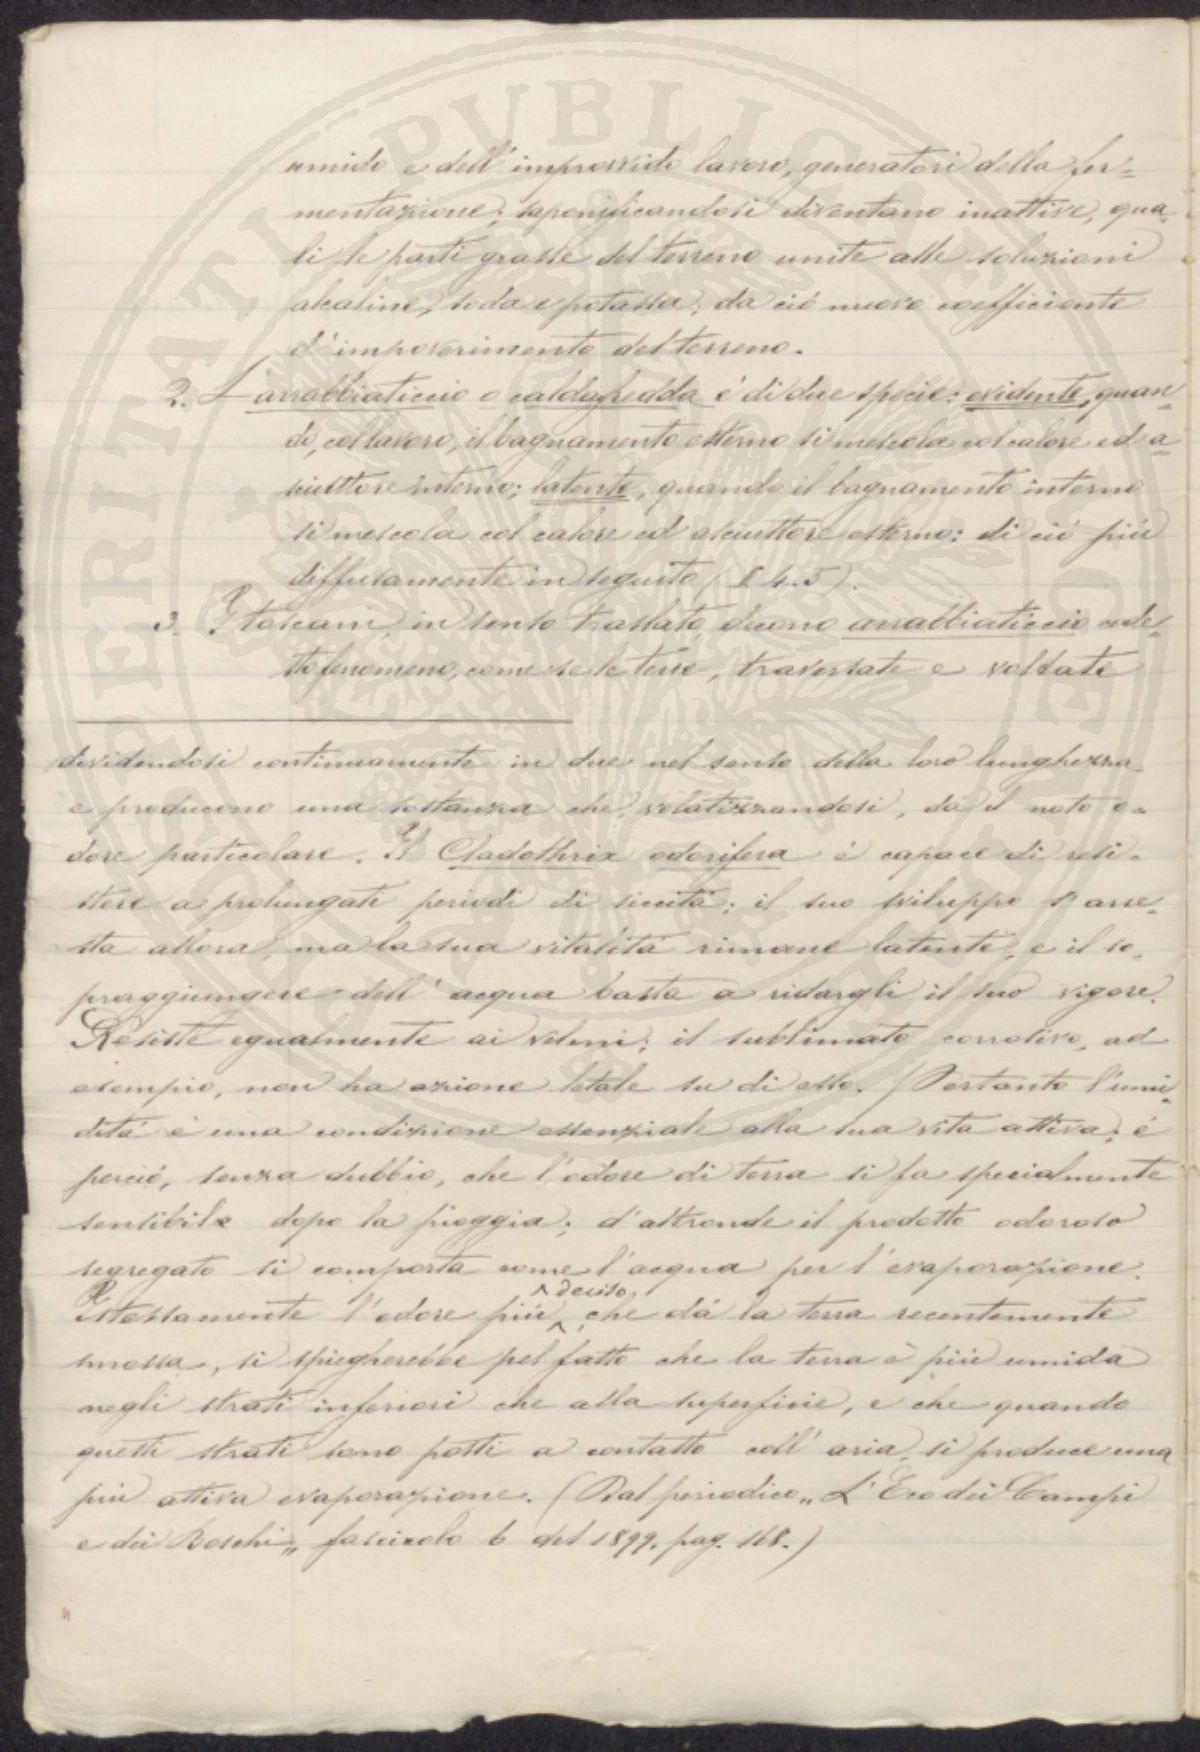 umido e dell'improvvido lavoro, generatori della fer=
mentazione; saponificandosi diventano inattive, qua=
li le parti grasse del terreno unite alle soluzioni
alcaline, soda e potassa; da ciò nuovo coefficiente
d'impoverimento del terreno.
2. L'arrabbiaticcio o caldafredda è di due specie: evidente, quan=
do, col lavoro, il bagnamento esterno si mescola col calore ed a=
sciuttore interno; latente, quando il bagnamento interno
si mescola col calore ed asciuttore esterno: di ciò più
diffusamente in seguito (§ 4. 5).
3. I toscani, in senso traslato, dicono arrabbiaticcio code=
sto fenomeno, come se le terre, traversate e voltate
dividendosi continuamente in due nel senso della loro lunghezza
e producono una sostanza che, volatizzandosi, dà il noto o=
dore particolare. Il Cladothrix odorifera è capace di resi=
stere a prolungati periodi di siccità; il suo sviluppo s'arre=
sta allora, ma la sua vitalità rimane latente, e il so=
praggiungere dell'acqua basta a ridargli il suo vigore.
Resiste egualmente ai veleni; il sublimato corrosivo, ad
esempio, non ha azione letale su di esso. Pertanto l'umi=
dità è una condizione essenziale alla sua vita attiva; è
perciò, senza dubbio, che l'odore di terra si fa specialmente
sensibile dopo la pioggia; d'altronde il prodotto odoroso
segregato si comporta come l'acqua per l'evaporazione.
Istessamente l'odore più deciso, che dà la terra recentemente
smossa, si spiegherebbe pel fatto che la terra è più umida
negli strati inferiori che alla superficie, e che quando
questi strati sono posti a contatto coll'aria, si produce una
più attiva evaporazione. (Dal periodico „L'Eco dei Campi
e dei Boschi„ fascicolo 6 del 1899, pag. 168.)
SPERITATI PUBLICAE